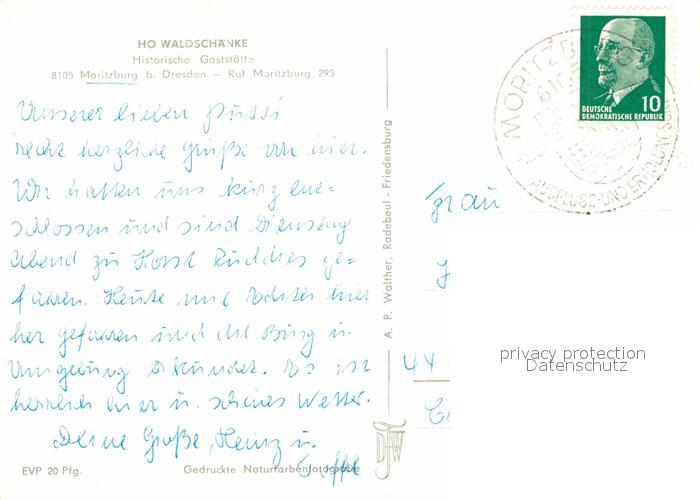 HO WALDSCHÄNKE
Historische Gaststätte
8105 Moritzburg b. Dresden – Ruf Moritzburg 295
Unserer lieben Putti
recht herzliche Grüße von hier.
Wir hatten uns kurz ent-
schlossen und sind Dienstag
Abend zu Horst ge-
fahren. Heute mit hier
her gefahren und die Burg u.
Umgebung erkundet. Es ist
herrlich hier u. schönes Wetter.
Deine Große, Heinz u.
EVP 20 Pfg.
Gedruckte Naturfarbenfotografie
A. P. Walther, Radebeul - Friedensburg
DEUTSCHE
DEMOKRATISCHE REPUBLIK
10
MORITZB
AUSFLUGS-UND ERHOLUNGSORT
Frau
44
privacy protection
Datenschutz